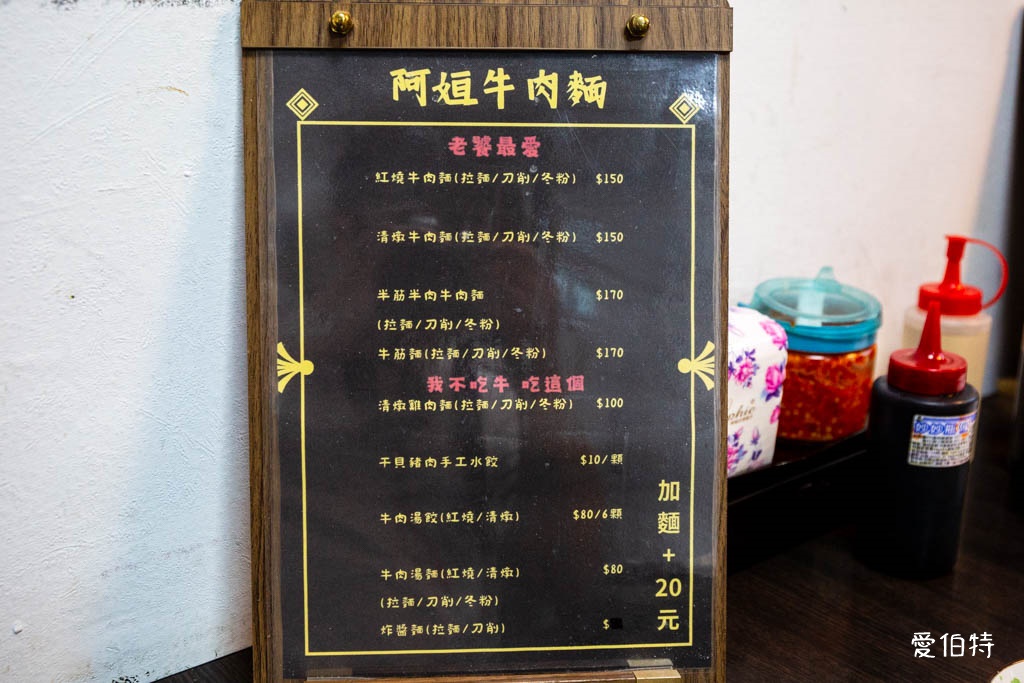 阿姮牛肉麵
老饕最愛
紅燒牛肉麵(拉麵/刀削/冬粉) $150
清燉牛肉麵(拉麵/刀削/冬粉) $150
半筋半肉牛肉麵 $170
(拉麵/刀削/冬粉)
牛筋麵(拉麵/刀削/冬粉) $170
我不吃牛 吃這個
清燉雞肉麵(拉麵/刀削/冬粉) $100
干貝豬肉手工水餃 $10/顆
牛肉湯餃(紅燒/清燉) $80/6顆
牛肉湯麵(紅燒/清燉) $80
(拉麵/刀削/冬粉)
炸醬麵(拉麵/刀削) $
加麵+20元
愛伯特